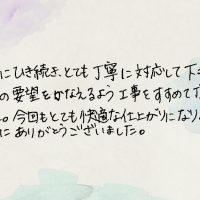 にひき続き、とても丁寧に対応して下さ
の要望をかなえるよう工事をすすめて下
。今回もとても快適な仕上がりになり
にありがとうございました。